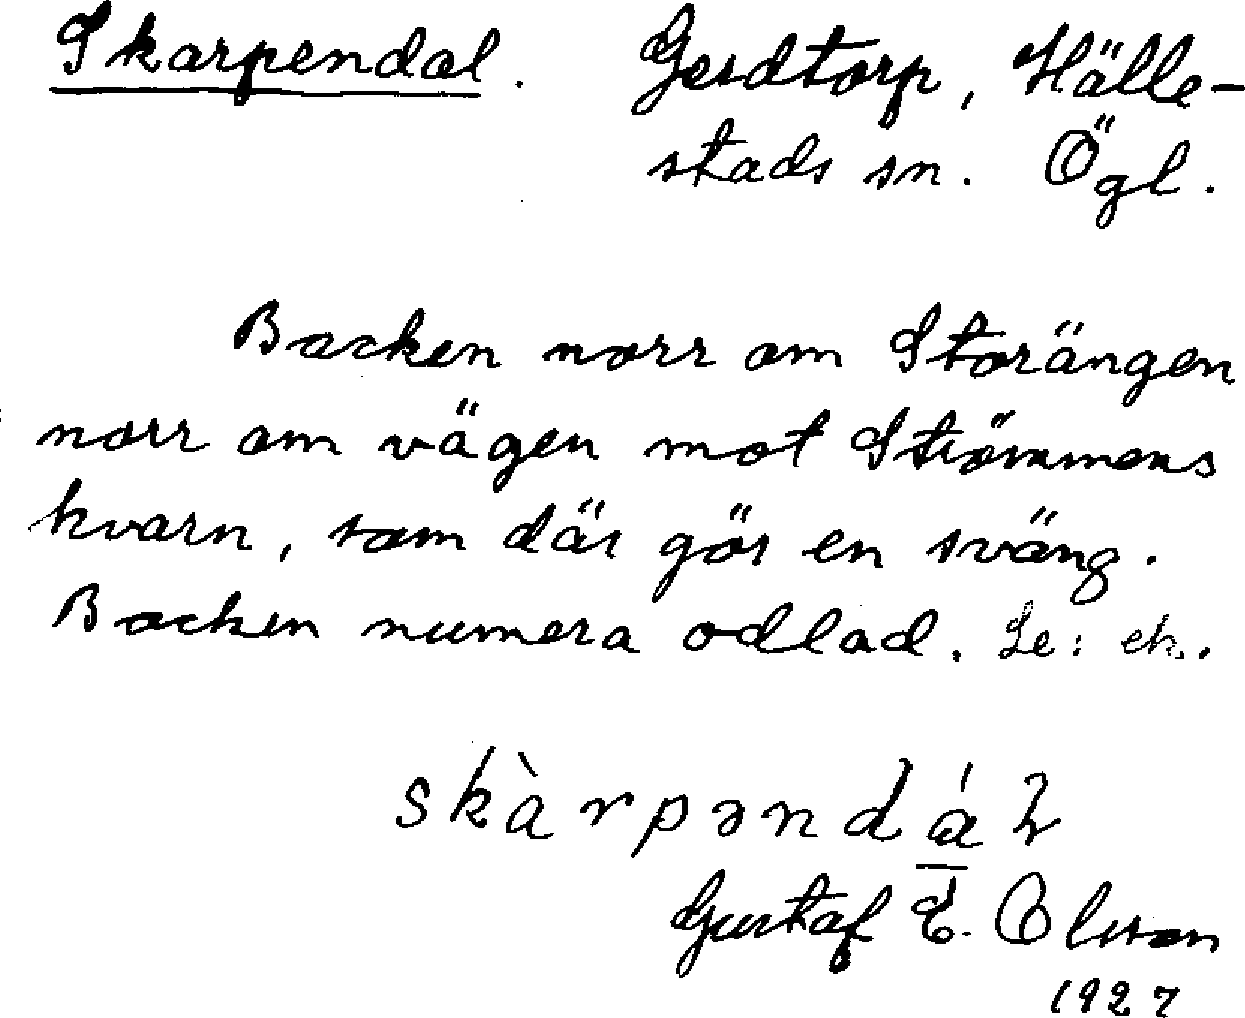 Skarpendal. Gerdtorp, Hälle-
stads sn. Ögl.
Backen norr om Storängen
norr om vägen mot Strömmens
kvarn, som där gör en sväng.
Backen numera odlad. Le: ek.
skàrpəndál
Gustaf E. Olsson
1927